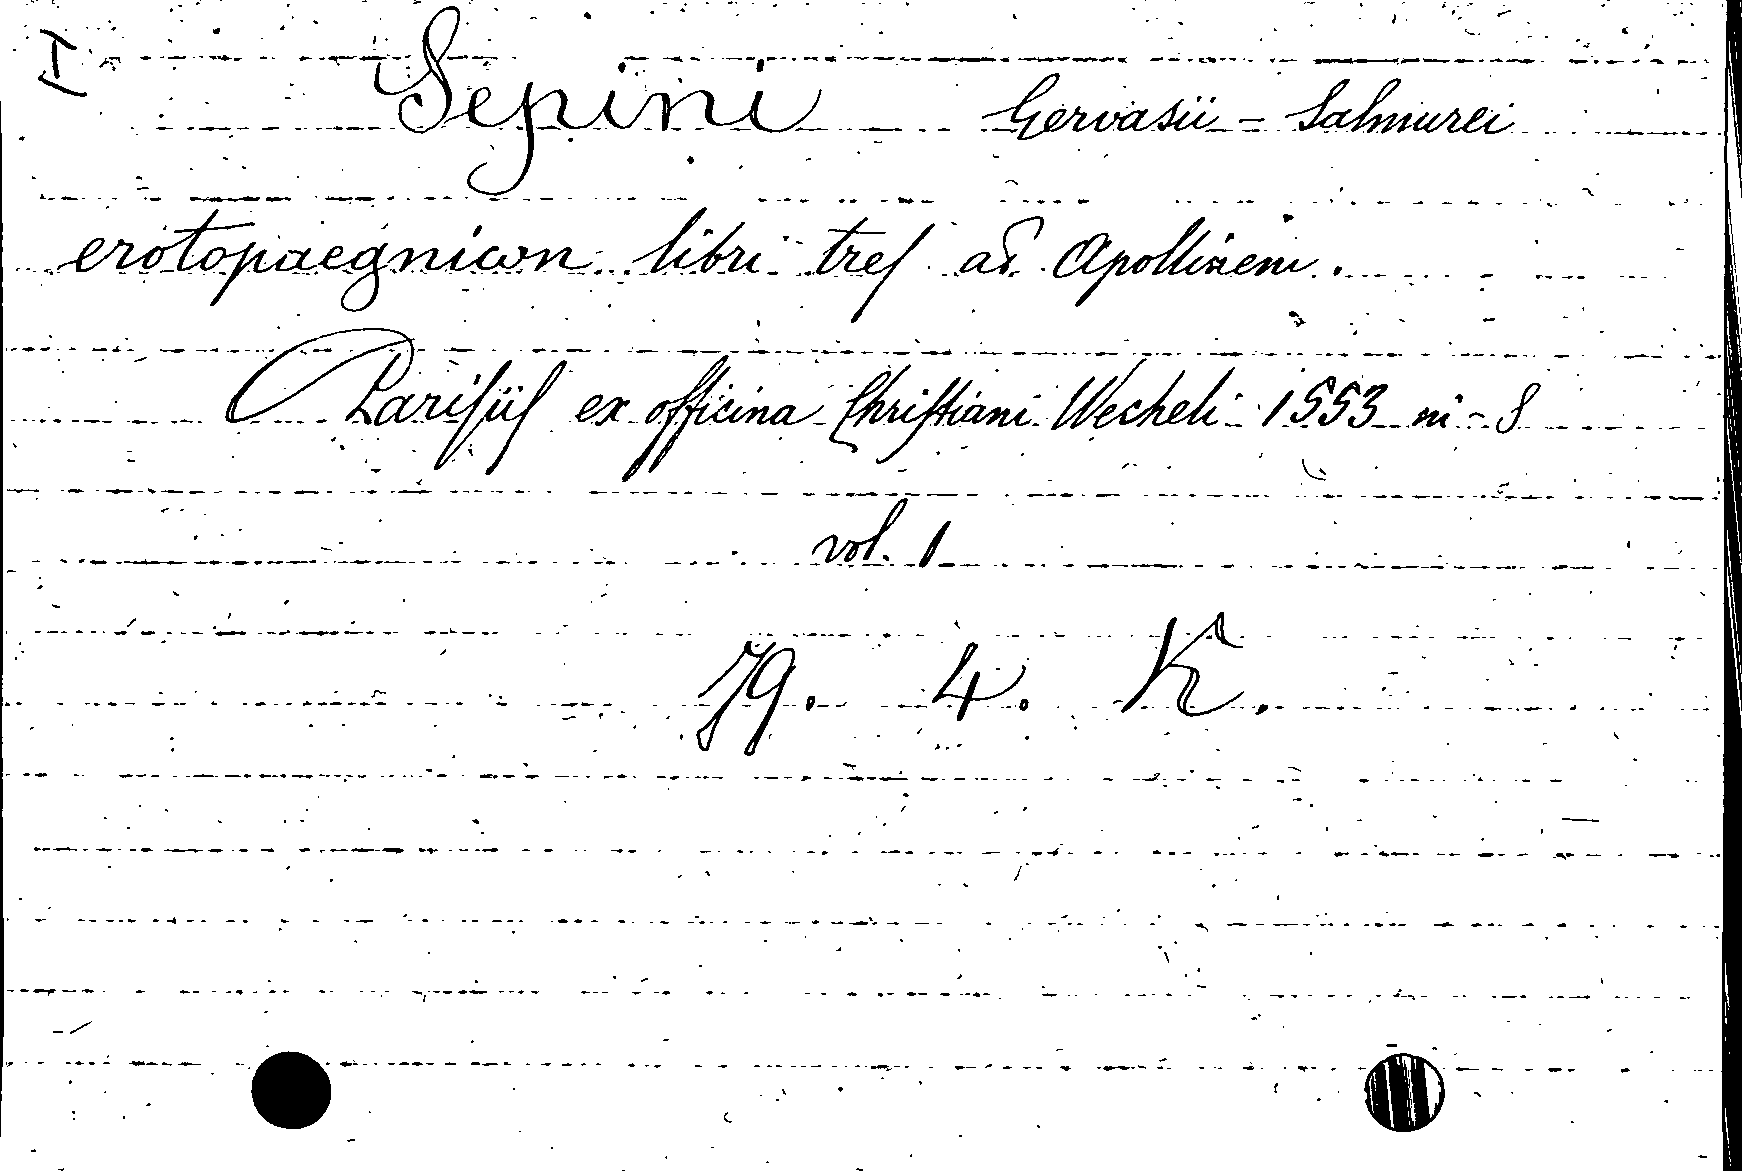 I Sepini Gervasii - Salmurei
erotopaegnicωn libri tres ad Apollinem.
Parisiis ex officina Christiani Wecheli 1553 in-8
vol. 1
79. 4. K.